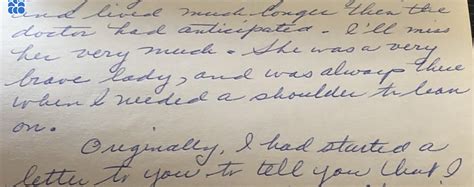 and lived much longer then the
doctor had anticipated. I'll miss
her very much. She was a very
brave lady, and was always there
when I needed a shoulder to lean
on.
Originally, I had started a
letter to you to tell you that I